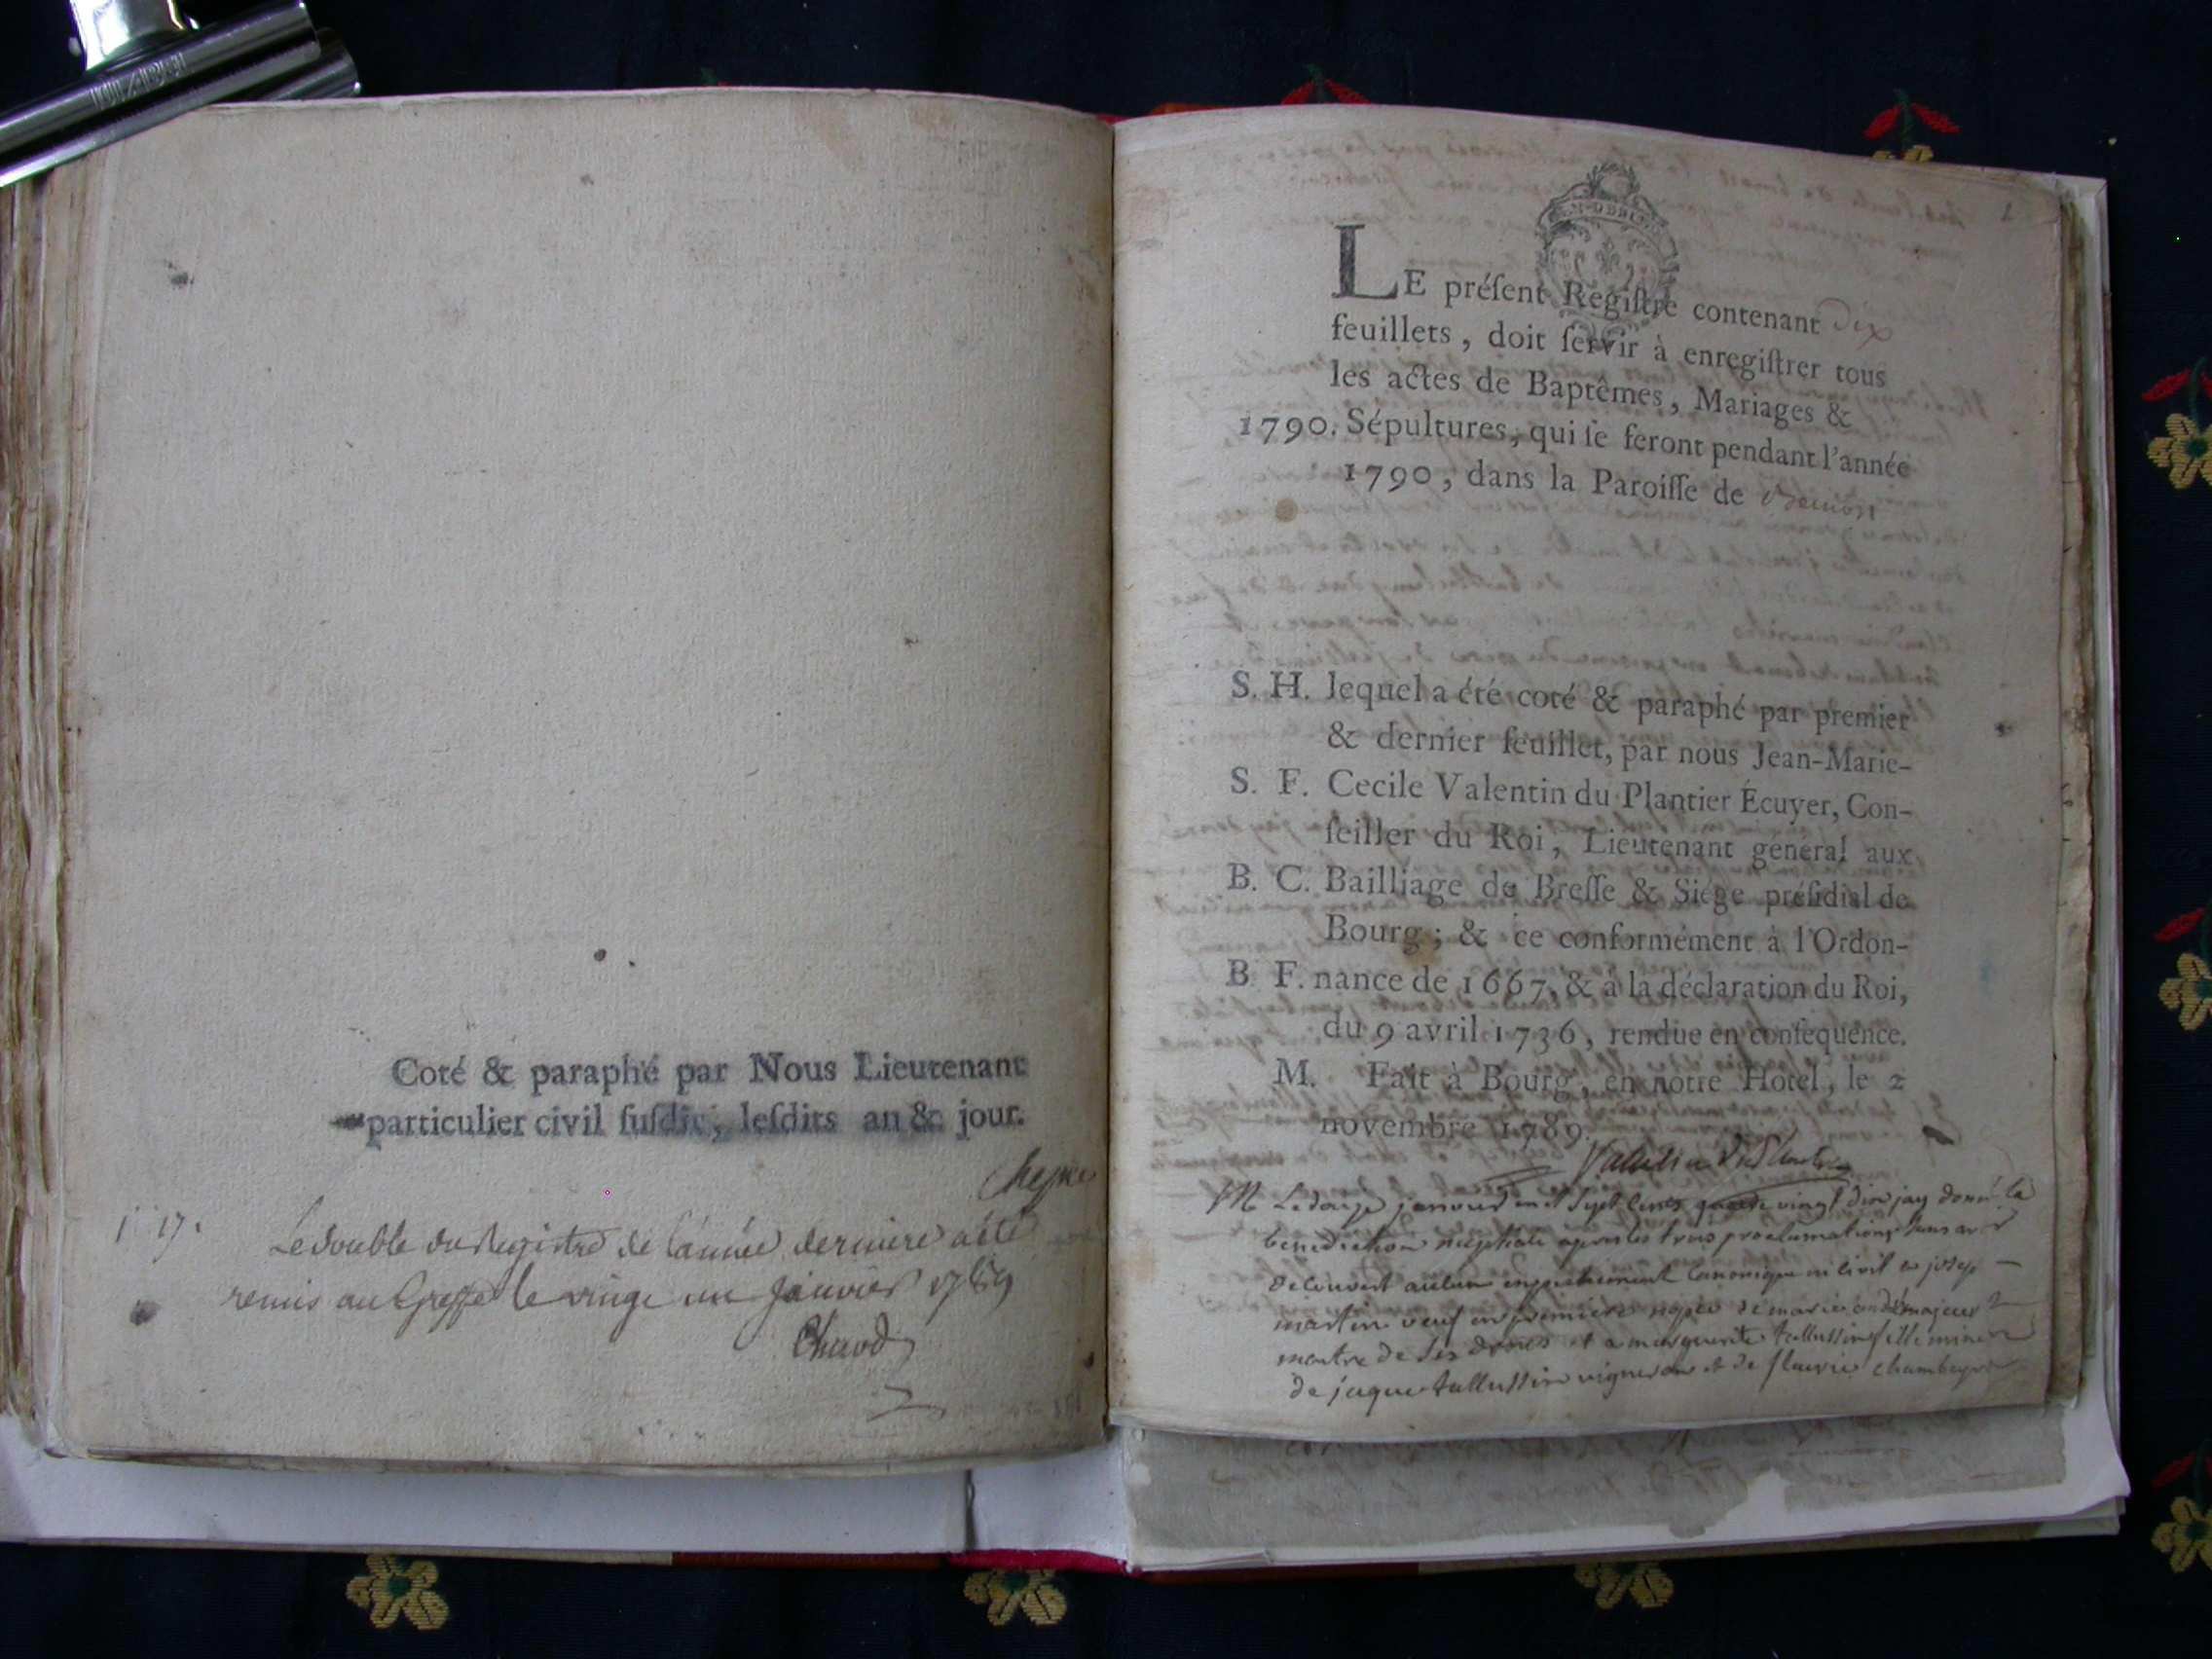 Coté & paraphé par Nous Lieutenant
particulier civil ſuſdit, leſdits an & jour.
Le double du Registre de l'année derniere a été
remis au Greffe le vingt un Janvier 1789
LE préſent Regiſtre contenant dix
feuillets, doit ſervir à enregiſtrer tous
les actes de Baptêmes, Mariages &
1790. Sépultures, qui ſe feront pendant l'année
1790, dans la Paroiſſe de
S. H. lequel a été coté & paraphé par premier
& dernier feuillet, par nous Jean-Marie-
S. F. Cecile Valentin du Plantier Écuyer, Con-
ſeiller du Roi, Lieutenant general aux
B. C. Bailliage de Breſſe & Siége préſidial de
Bourg; & ce conformément à l'Ordon-
B F. nance de 1667, & à la déclaration du Roi,
du 9 avril 1736, rendue en conſequence.
M. Fait à Bourg, en notre Hotel, le 2
novembre 1789.
Valentin DuPlantier
M Le douze janvier mil sept cents quatre vingt dix jay donné la
benediction nuptiale apres les trois proclamations sans avoir
decouvert aucun empechement canonique ni civil a josep
martin veuf en premiere nopces de marie majeur
maitre de ses droits et a marguerite tallussin fille mineure
de jaque tallussin vigneron et de fleurie